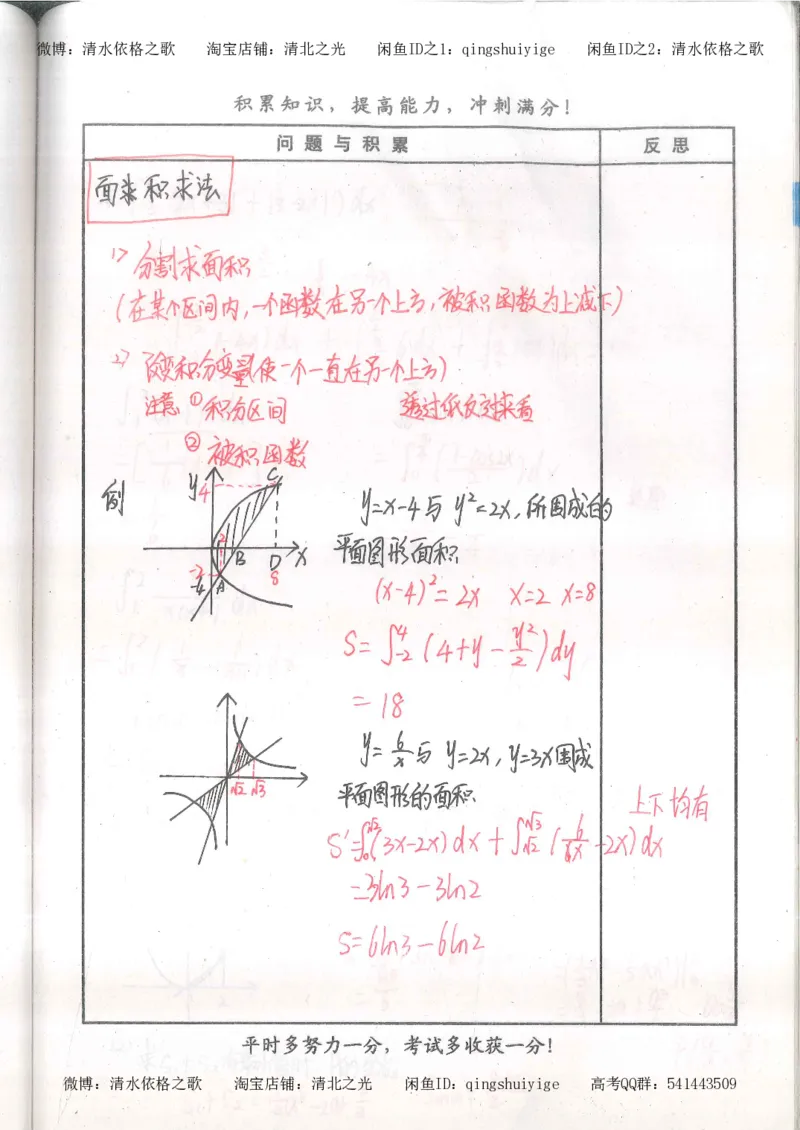 微博：清水依格之歌 淘宝店铺：清北之光 闲鱼ID之1：qingshuiyige 闲鱼ID之2：清水依格之歌
积累知识，提高能力，冲刺满分！
问题与积累 反思
面积求法
1) 分割求面积
(在某个区间内,一个函数在另一个上方,被积函数为上减下)
2) 改变积分变量(使一个一直在另一个上方)
注意 ①积分区间 透过纸反过来看
②被积函数
例
y 4 C
2 B D x
-2 -4 A 8
y=x-4与 y²=2x,所围成的
平面图形面积
(x-4)²=2x x=2 x=8
S=∫₋₂⁴(4+y-y²/2)dy
=18
y=6/x与 y=2x,y=3x围成
平面图形的面积
√2 √3
上下均有
S'=∫₀^√2(3x-2x)dx+∫_√2^√3(6/x-2x)dx
=3ln3-3ln2
S=6ln3-6ln2
平时多努力一分，考试多收获一分！
微博：清水依格之歌 淘宝店铺：清北之光 闲鱼ID：qingshuiyige 高考QQ群：541443509